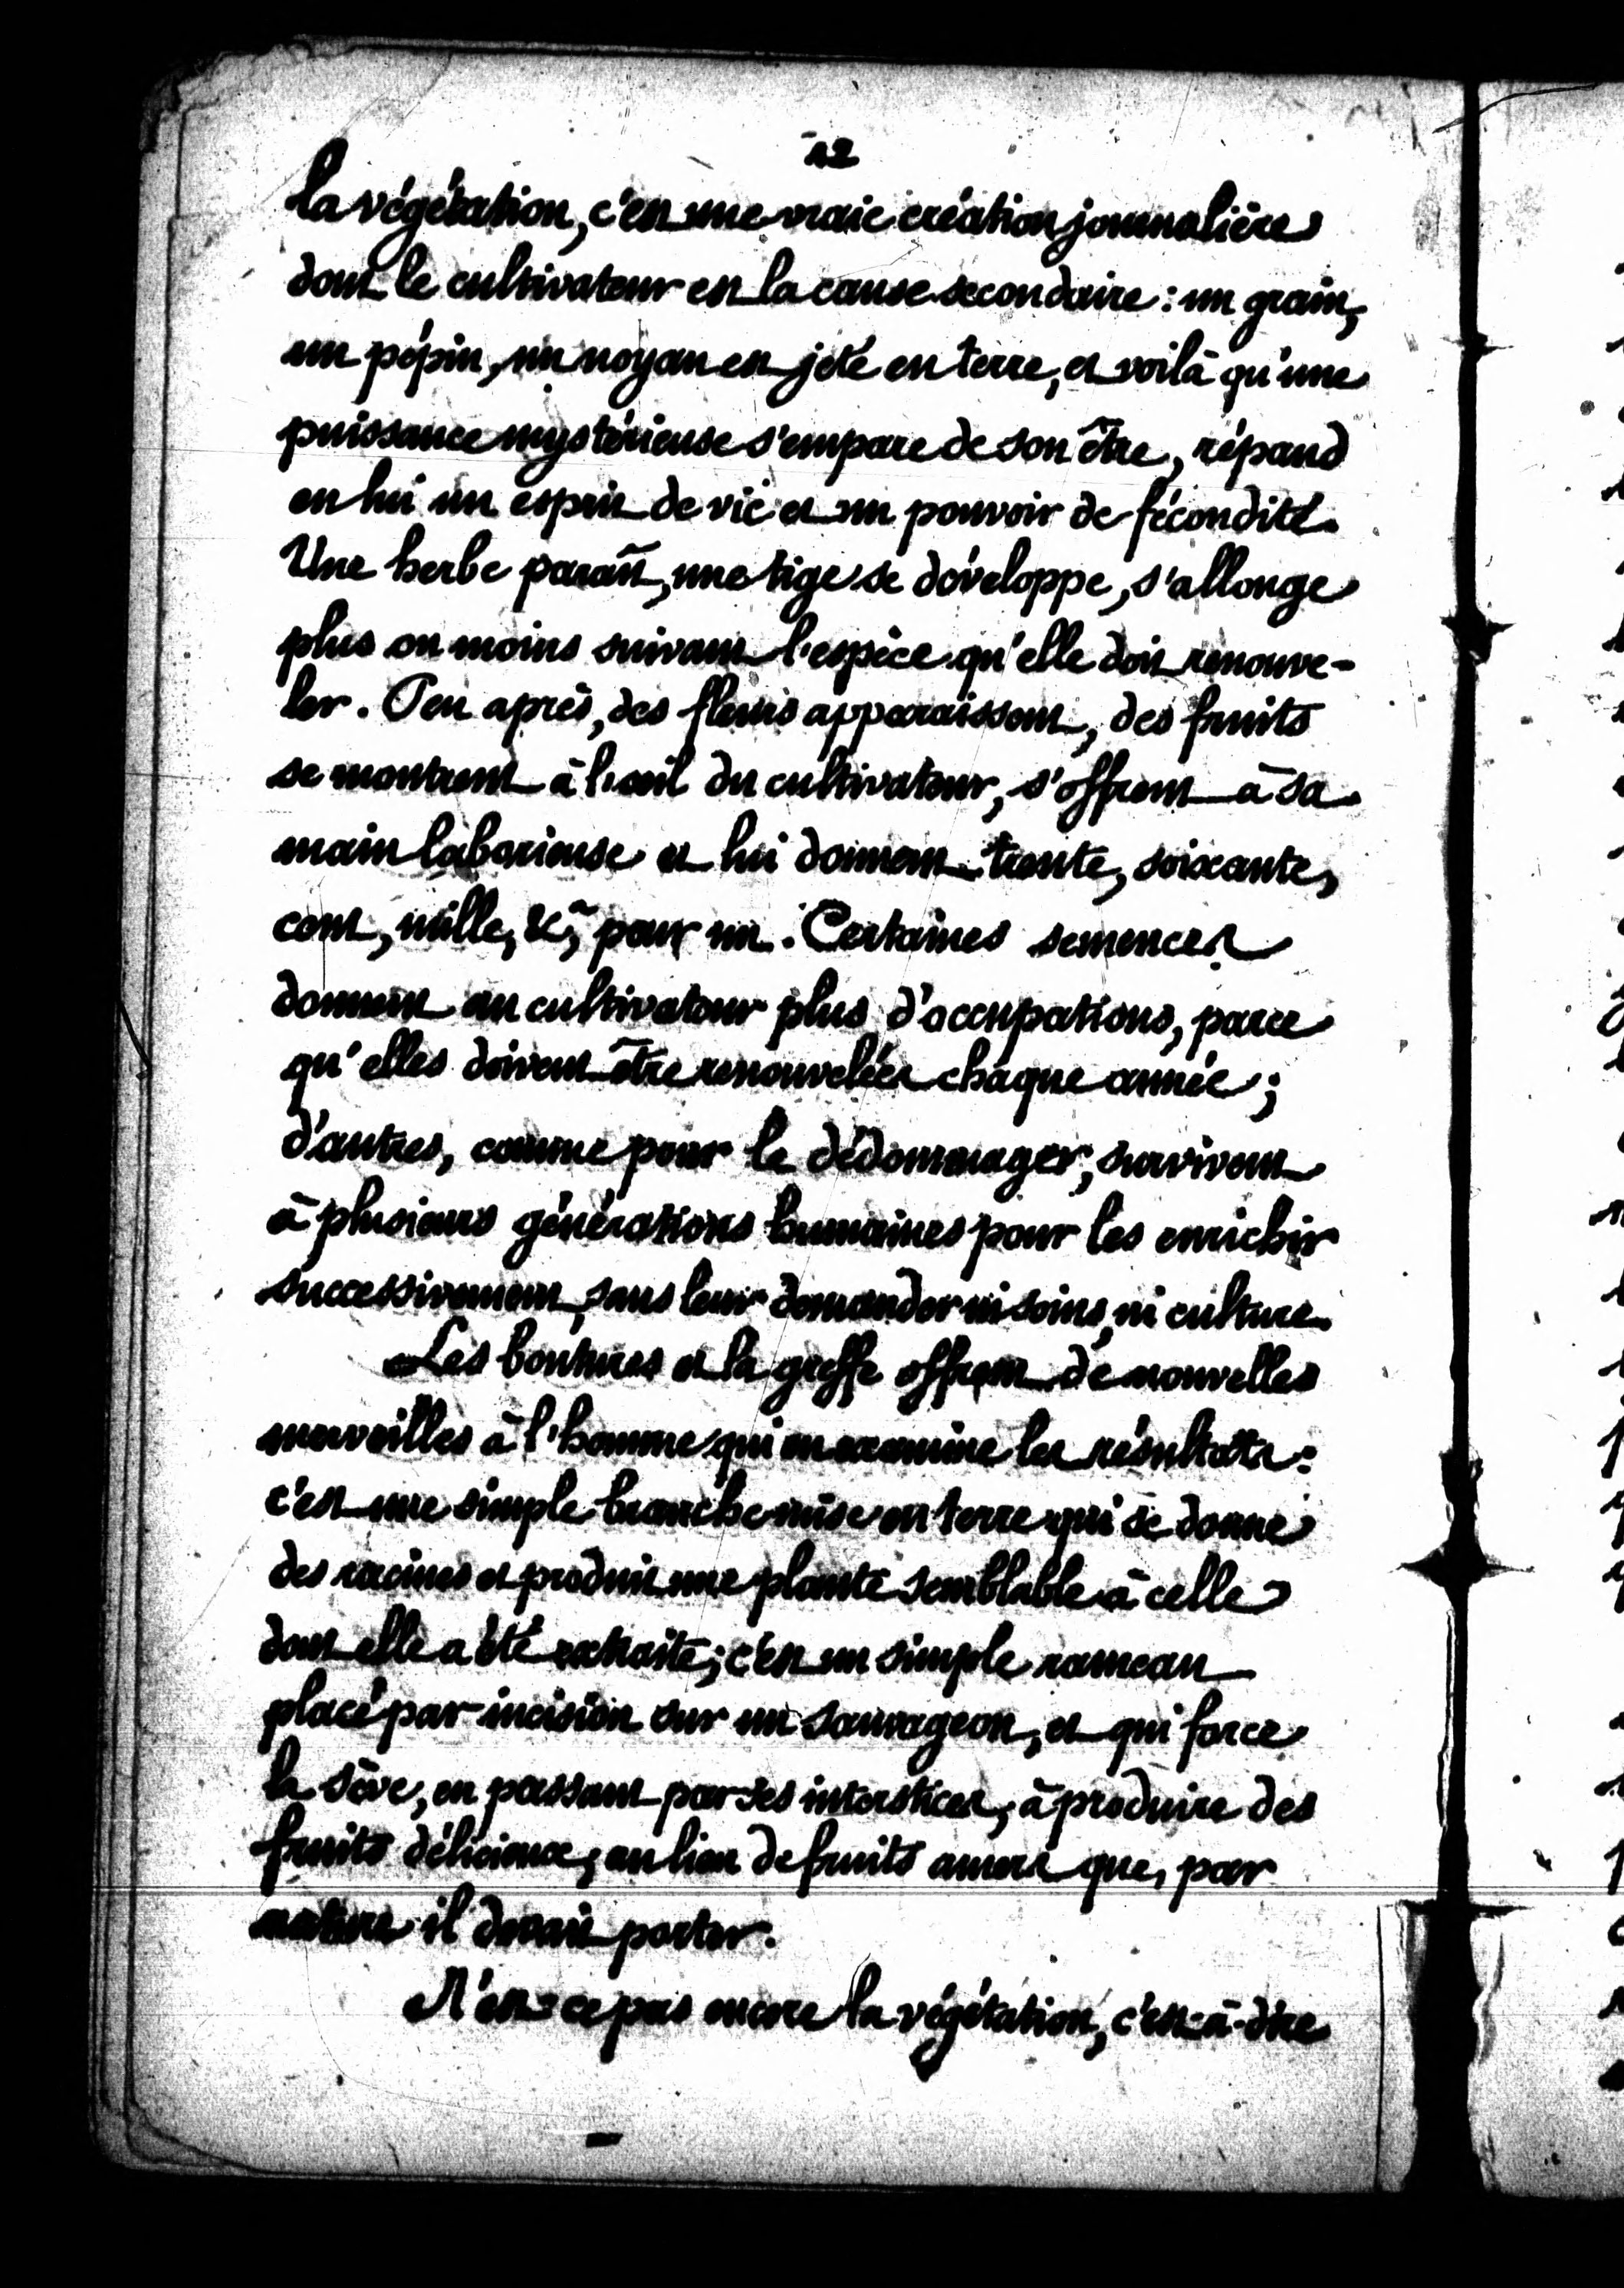 12
la végétation, c'est une vraie création journalière
dont le cultivateur est la cause secondaire : un grain,
un pépin, un noyau est jeté en terre, et voilà qu'une
puissance mystérieuse s'empare de son être, répand
en lui un esprit de vie et un pouvoir de fécondité.
Une herbe paraît, une tige se développe, s'allonge
plus ou moins suivant l'espèce qu'elle doit renouve-
ler. Peu après, des fleurs apparaissent, des fruits
se montrent à l'œil du cultivateur, s'offrent à sa
main laborieuse et lui donnent trente, soixante,
cent, mille, &c, pour un. Certaines semences
donnent au cultivateur plus d'occupations, parce
qu'elles doivent être renouvelées chaque année ;
d'autres, comme pour le dédommager, survivent
à plusieurs générations humaines pour les enrichir
successivement, sans leur demander ni soins, ni culture.
Les boutures et la greffe offrent de nouvelles
merveilles à l'homme qui en examine les résultats :
c'est une simple branche mise en terre qui se donne
des racines et produit une plante semblable à celle
dont elle a été extraite ; c'est un simple rameau
placé par incision sur un sauvageon, et qui force
la sève, en passant par ses interstices, à produire des
fruits délicieux, au lieu de fruits amers que, par
nature il devait porter.
N'est-ce pas encore la végétation, c'est-à-dire